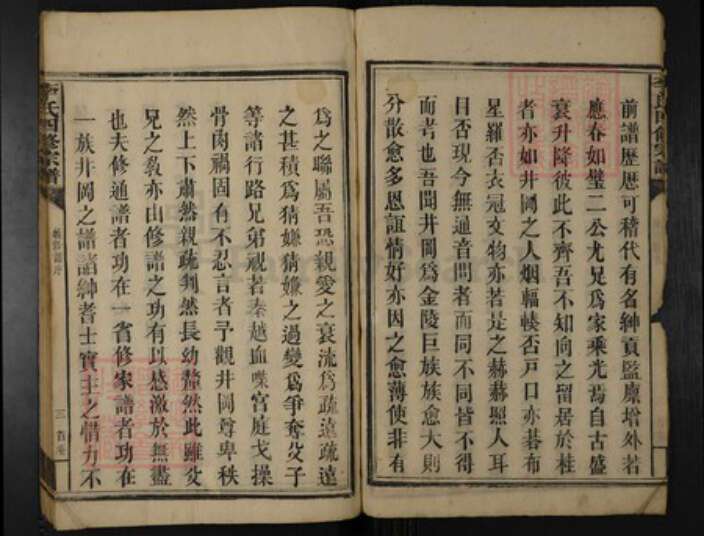 前譜歷歷可稽代有名紳貢監廩增外若
應春如璧二公尤足為家乘光焉自古盛
衰升降彼此不齊吾不知向之留居於桂
者亦如井岡之人烟輻輳否戶口亦碁布
星羅否衣冠文物亦若是之赫赫照人耳
目否現今無通音問者而同不同皆不得
而考也吾聞井岡為金陵巨族族愈大則
分散愈多恩誼情好亦因之愈薄使非有
李氏四修宗譜
為之聯屬吾恐親愛之衰流為疏遠疏遠
之甚積為猜嫌猜嫌之過變為爭奪父子
等諸行路兄弟視若秦越血喋宮庭戈操
骨肉禍固有不忍言者予觀井岡尊卑秩
然上下肅然親疏判然長幼釐然此雖父
兄之教亦由修譜之功有以感激於無盡
也夫修通譜者功在一省修家譜者功在
一族井岡之譜諸紳耆士實主之惜力不
李氏四修宗譜
三
首卷